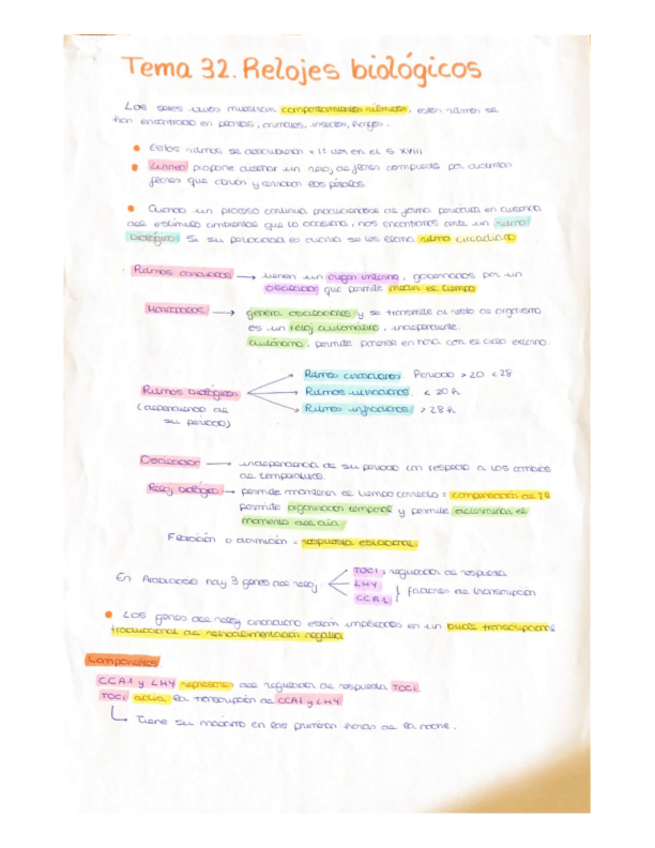 Tema 32. Relojes biológicos
Los seres vivos muestran comportamientos rítmicos, estos ritmos se
han encontrado en plantas, animales, insectos, hongos.
• Estos ritmos se descubrieron x 1ª vez en el S. XVIII
• Linneo propone diseñar un reloj de flores compuesto por cuarenta
flores que abrían y cerraban los pétalos.
• Cuando un proceso continua produciendose de forma periódica en ausencia
del estímulo ambiental que lo ocasiona, nos encontramos ante un ritmo
biológico. Si su periocidad es diaria se les llama ritmo circadiano
Ritmos circadianos → tienen un origen interno, gobernados por un
oscilador que permite medir el tiempo
Marcapasos → genera oscilaciones y se transmite al resto de organismo
es un reloj automático, independiente.
autónomo, permite ponerse en hora con el ciclo externo.
Ritmos biológicos
(dependiendo de
su periodo)
Ritmos circadianos. Periodo > 20 < 28
Ritmos ultradianos. < 20 h
Ritmos infradianos > 28 h
Oscilador → independencia de su periodo con respecto a los cambios
de temperatura.
Reloj biológico → permite mantener el tiempo correcto = compensación de Tª
permite organización temporal y permite determinar el
momento del día.
Floración o dormición = respuesta estacional.
En Arabidopsis hay 3 genes del reloj
TOC1 : regulador de respuesta
LHY
CCA1 } factores de transcripción
• Los genes del reloj circadiano están implicados en un bucle transcripcional
traduccional de retroalimentación negativa
Componentes
CCA1 y LHY represores del regulador de respuesta TOC1
TOC1 activa la transcripción de CCA1 y LHY
↳ Tiene su máximo en las primeras horas de la noche.